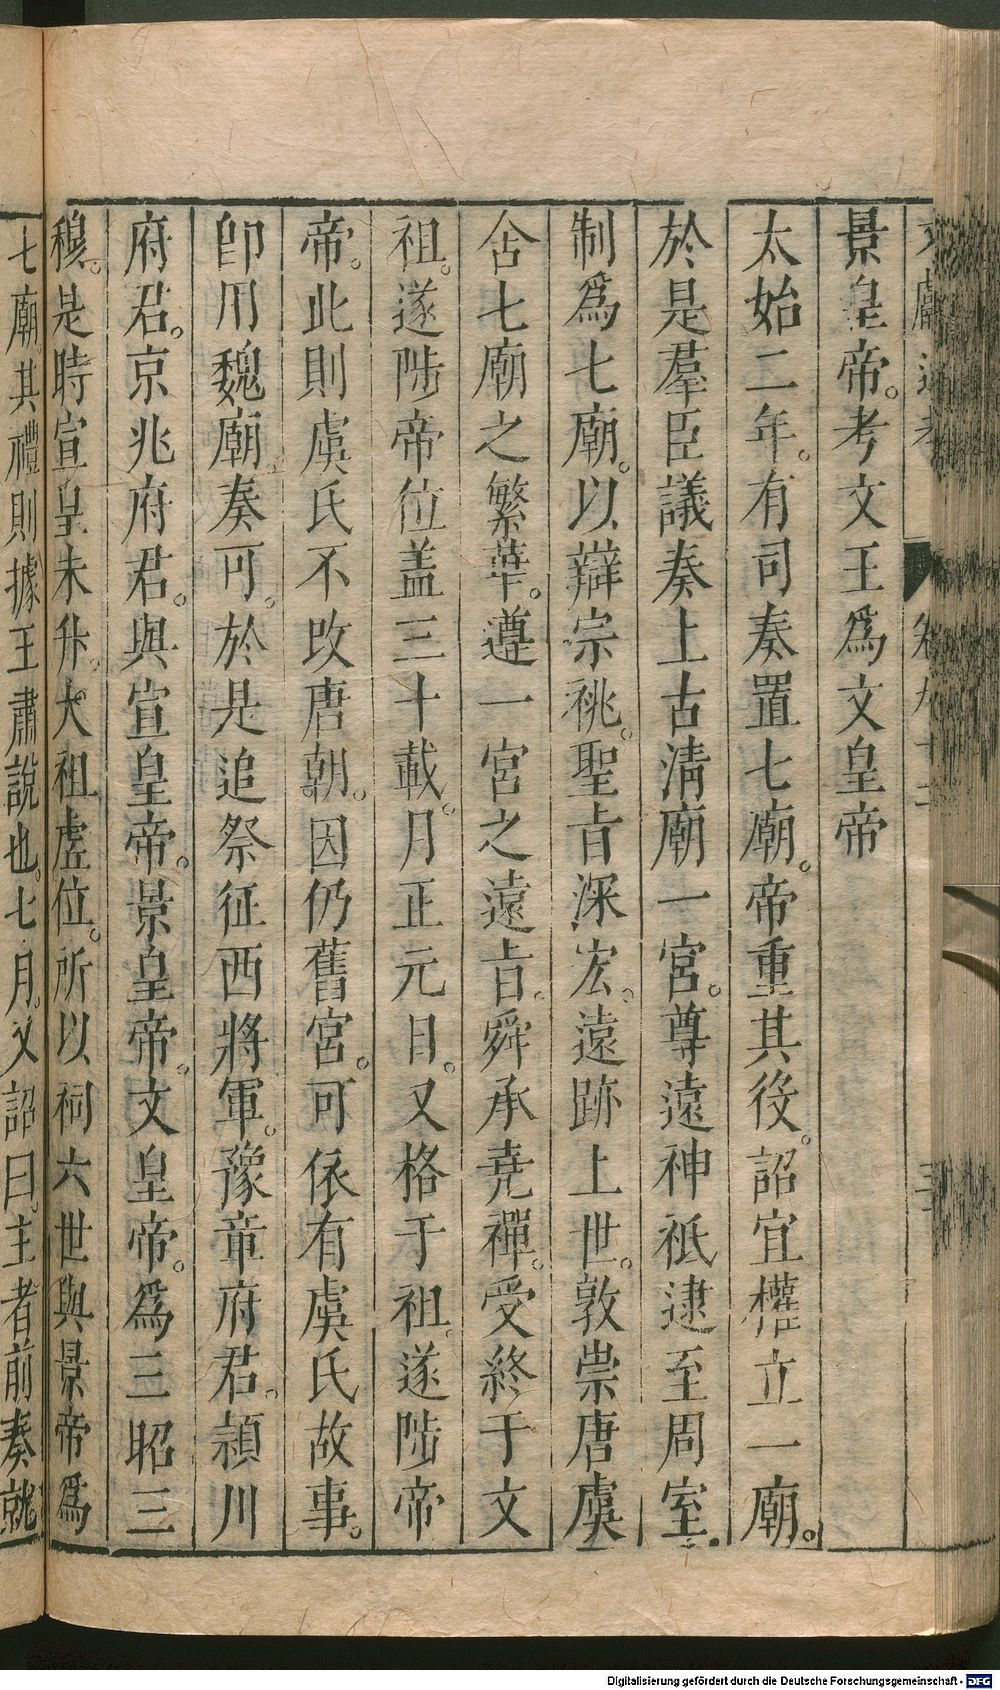 景皇帝。考文王爲文皇帝
太始二年。有司奏置七廟。帝重其役。詔宜權立一廟。
於是羣臣議奏上古清廟一宮。尊遠神祇逮至周室。
制爲七廟。以辯宗祧。聖旨深宏。遠跡上世。敦崇唐虞
舍七廟之繁華。遵一宮之遠旨。舜承堯禪。受終于文
祖。遂陟帝位盖三十載。月正元日。又格于祖。遂陟帝
帝。此則虞氏不改唐朝。因仍舊宮。可依有虞氏故事。
卽用魏廟。奏可。於是追祭征西將軍。豫章府君。潁川
府君。京兆府君。與宣皇帝。景皇帝。文皇帝。爲三昭三
穆。是時宣皇未升。大祖虛位。所以祠六世與景帝爲
七廟。其禮則據王肅說也。七月。又詔曰。主者前奏就
Digitalisierung gefördert durch die Deutsche Forschungsgemeinschaft - DFG